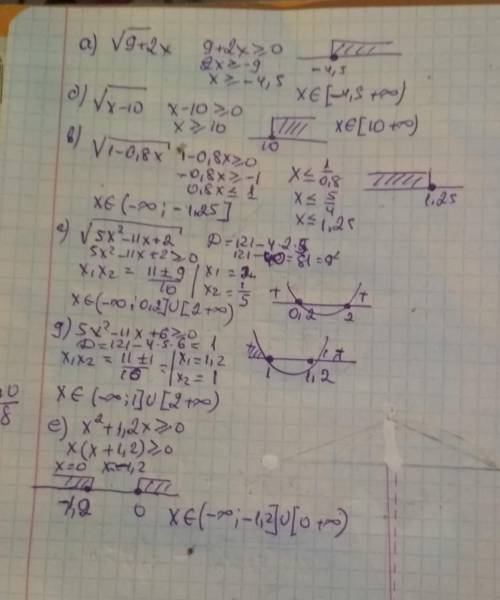 а) √9+2x 9+2x ≥ 0
2x ≥ -9
x ≥ -4,5
-4,5
x∈[-4,5 +∞)
б) √x-10 x-10 ≥ 0
x ≥ 10
10
x∈[10 +∞)
в) √1-0,8x 1-0,8x ≥ 0
-0,8x ≥ -1
0,8x ≤ 1
x ≤ 1/0,8
x ≤ 5/4
x ≤ 1,25
1,25
x∈(-∞; -1,25]
г) √5x²-11x+2 D = 121-4·2·5
5x²-11x+2 ≥ 0 121-40=81=9²
x₁x₂ = 11±9/10 | x₁ = 2
x₂ = 1/5
+ 0,2 2 +
x∈(-∞; 0,2]∪[2 +∞)
д) 5x²-11x+6 ≥ 0
D = 121-4·5·6 = 1
x₁x₂ = 11±1/10 = | x₁ = 1,2
x₂ = 1
1 1,2 +
x∈(-∞; 1]∪[2 +∞)
е) x²+1,2x ≥ 0
x(x+1,2) ≥ 0
x=0 x=-1,2
-1,2 0
x∈(-∞; -1,2]∪[0 +∞)